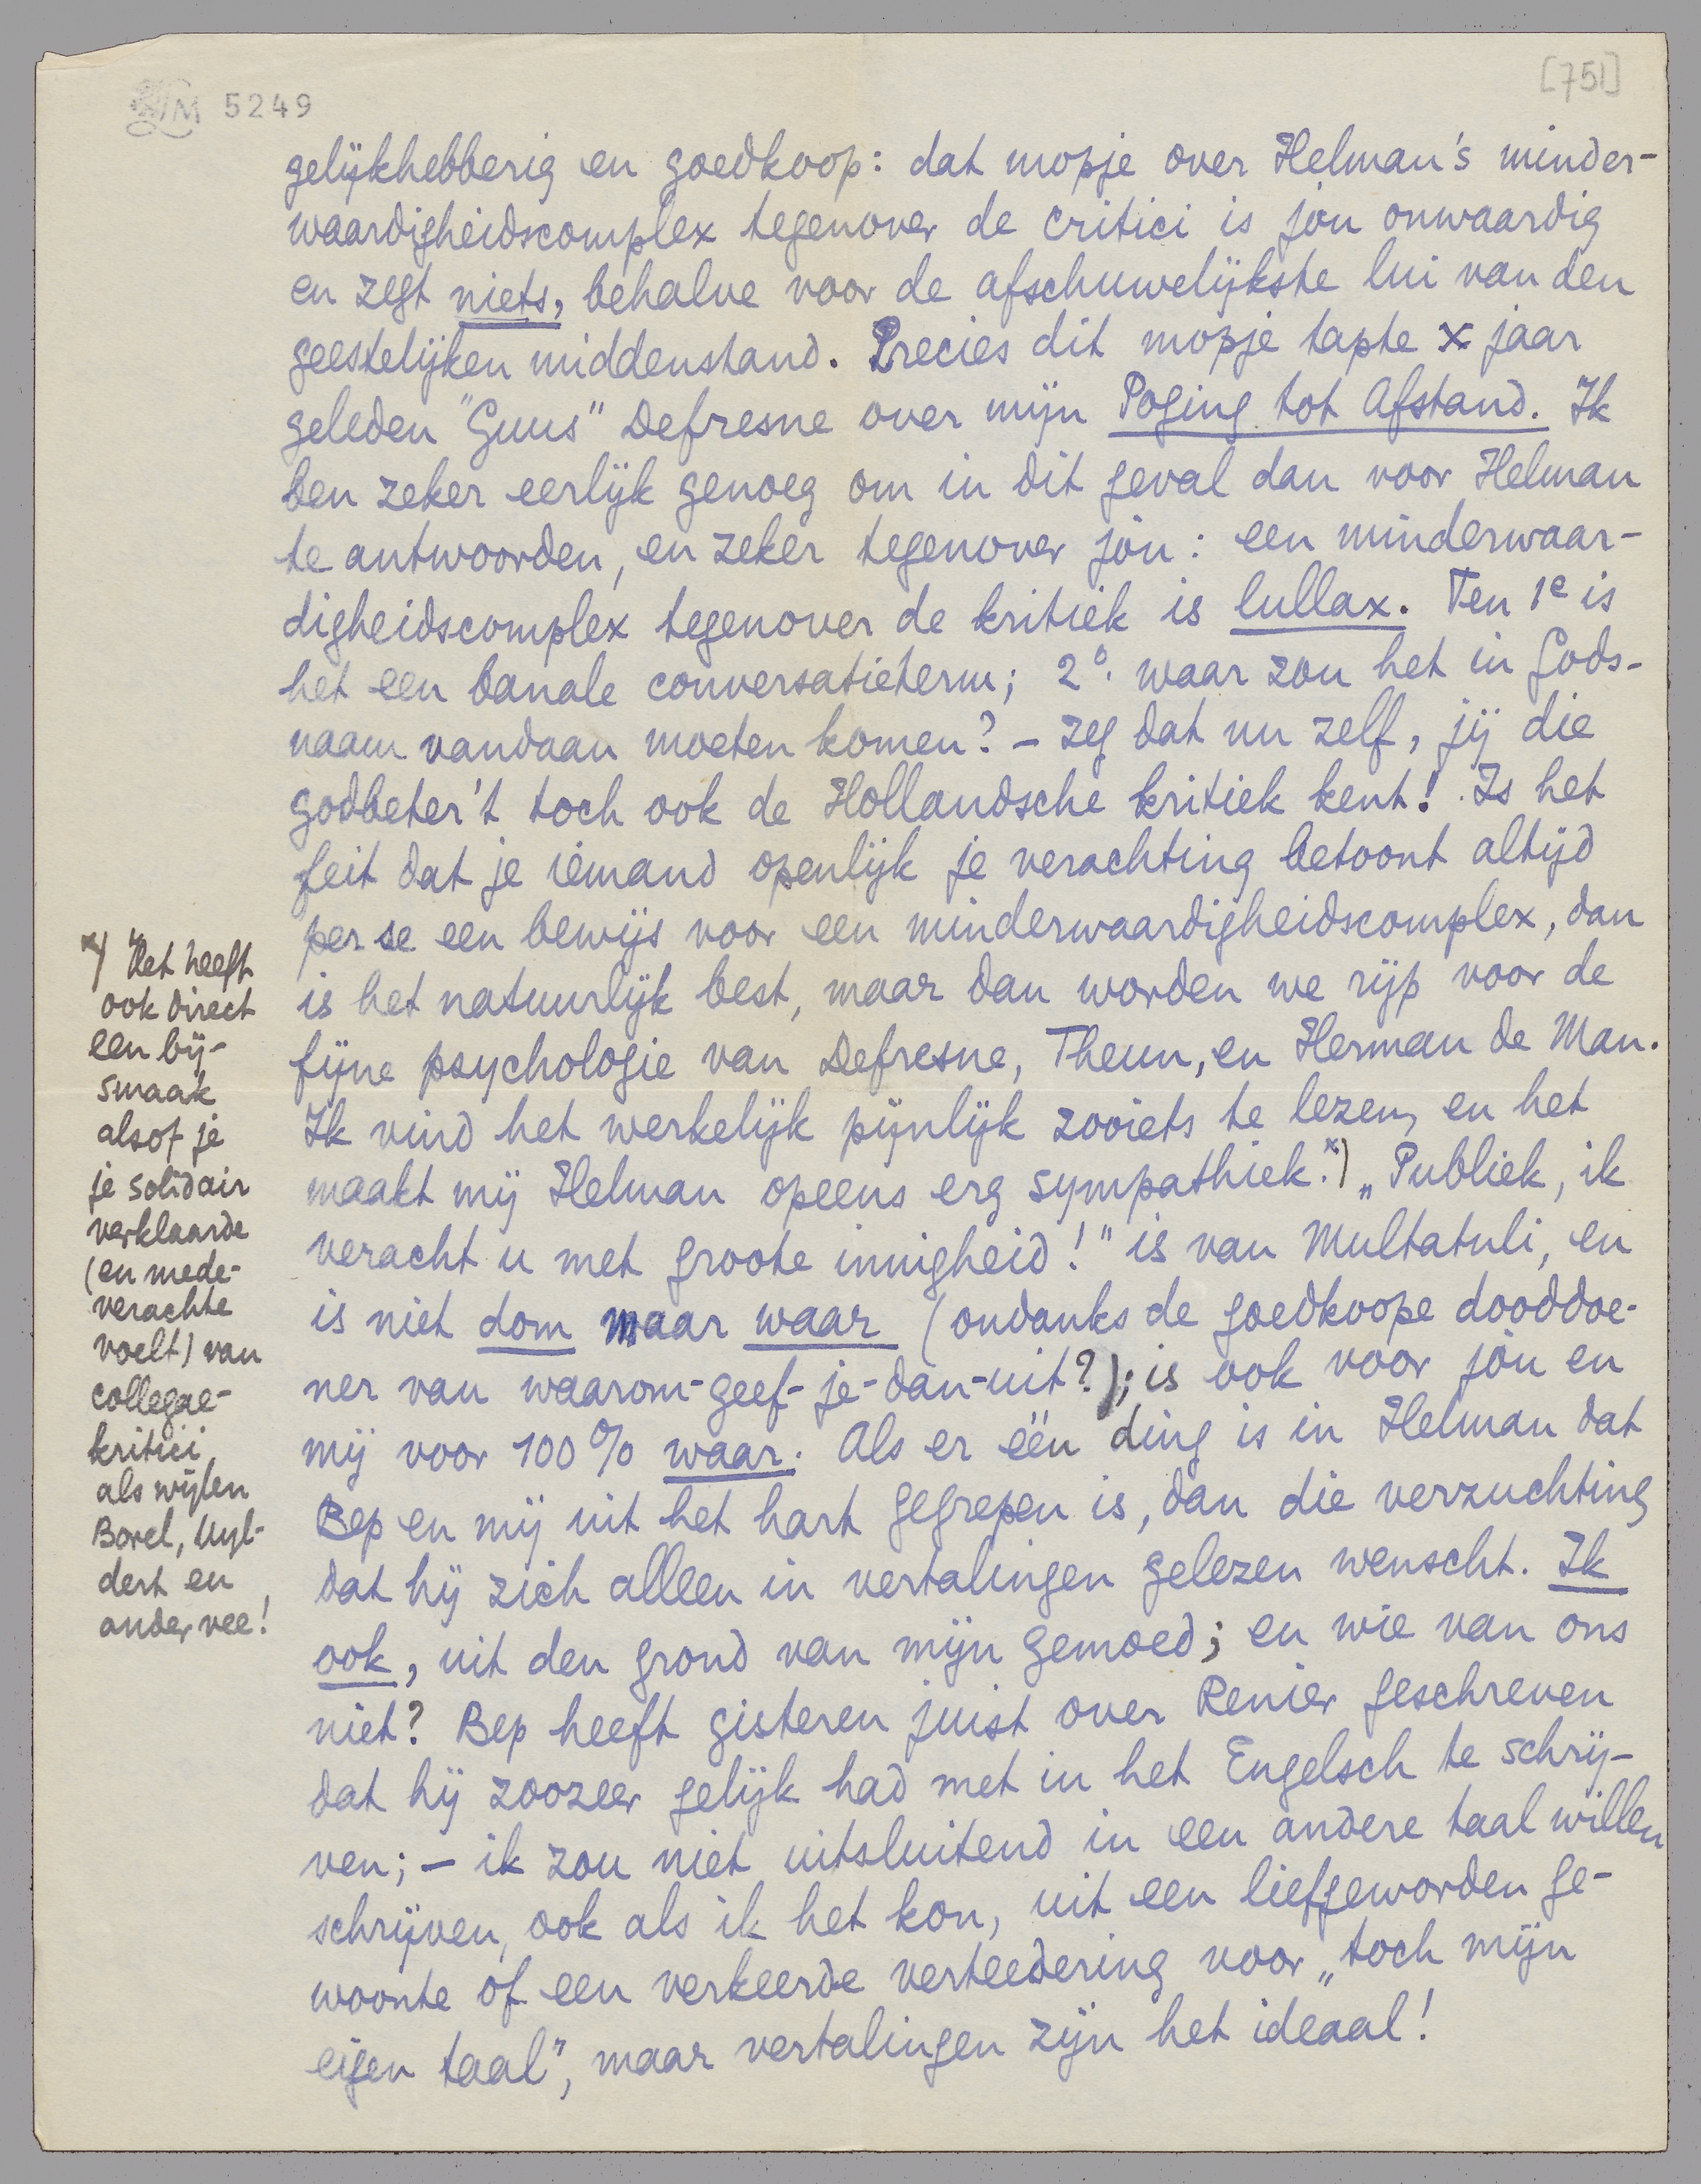 LM 5249
[751]
gelijkhebberig en goedkoop: dat mopje over Helman's minder-
waardigheidscomplex tegenover de critici is jòu onwaardig
en zegt niets, behalve voor de afschuwelijkste lui van den
geestelijken middenstand. Precies dit mopje tapte x jaar
geleden "Guus" Defresne over mijn Poging tot Afstand. Ik
ben zeker eerlijk genoeg om in dit geval dan voor Helman
te antwoorden, en zeker tegenover jòu: een minderwaar-
digheidscomplex tegenover de kritiek is lullax. Ten 1e is
het een banale conversatieterm; 2o. waar zou het in Gods-
naam vandaan moeten komen? – zeg dat nu zelf, jij die
godbeter't toch ook de Hollandsche kritiek kent! Is het
feit dat je iemand openlijk je verachting betoont altijd
per se een bewijs voor een minderwaardigheidscomplex, dan
is het natuurlijk best, maar dan worden we rijp voor de
fijne psychologie van Defresne, Theun, en Herman de Man.
Ik vind het werkelijk pijnlijk zooiets te lezen, en het
maakt mij Helman opeens erg sympathiek.x) „Publiek, ik
veracht u met groote innigheid!" is van Multatuli, en
is niet dom maar waar (ondanks de goedkoope dooddoe-
ner van waarom-geef-je-dan-uit?); is ook voor jòu en
mij voor 100% waar. Als er één ding is in Helman dat
Bep en mij uit het hart gegrepen is, dan die verzuchting
dat hij zich alleen in vertalingen gelezen wenscht. Ik
ook, uit den grond van mijn gemoed; en wie van ons
niet? Bep heeft gisteren juist over Renier geschreven
dat hij zoozeer gelijk had met in het Engelsch te schrij-
ven; – ik zou niet uitsluitend in een andere taal willen
schrijven, ook als ik het kon, uit een liefgeworden ge-
woonte of een verkeerde verteedering voor „toch mijn
eigen taal", maar vertalingen zijn het ideaal!
x) Het heeft
ook direct
een bij-
smaak
alsof je
je solidair
verklaarde
(en mede-
verachte
voelt) van
collegae-
kritici
als wijlen
Borel, Uyl-
dert en
ander vee!